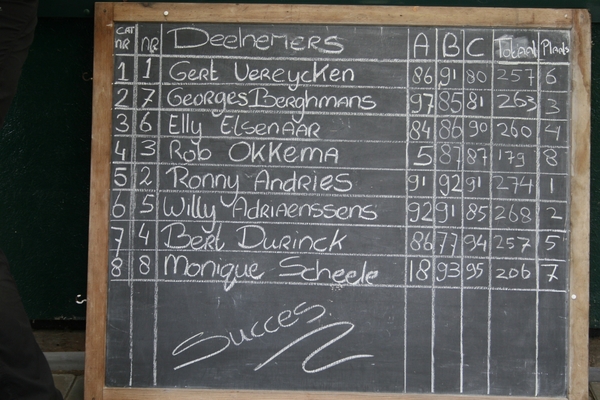 CAT NR NR Deelnemers A B C Totaal Plaats
1 1 Gert Vereycken 86 91 80 257 6
2 7 Georges Berghmans 97 85 81 263 3
3 6 Elly Elsenaar 84 86 90 260 4
4 3 Rob Okkema 5 87 87 179 8
5 2 Ronny Andries 91 92 91 274 1
6 5 Willy Adriaenssens 92 91 85 268 2
7 4 Bert Durinck 86 77 94 257 5
8 8 Monique Scheele 18 93 95 206 7
Succes